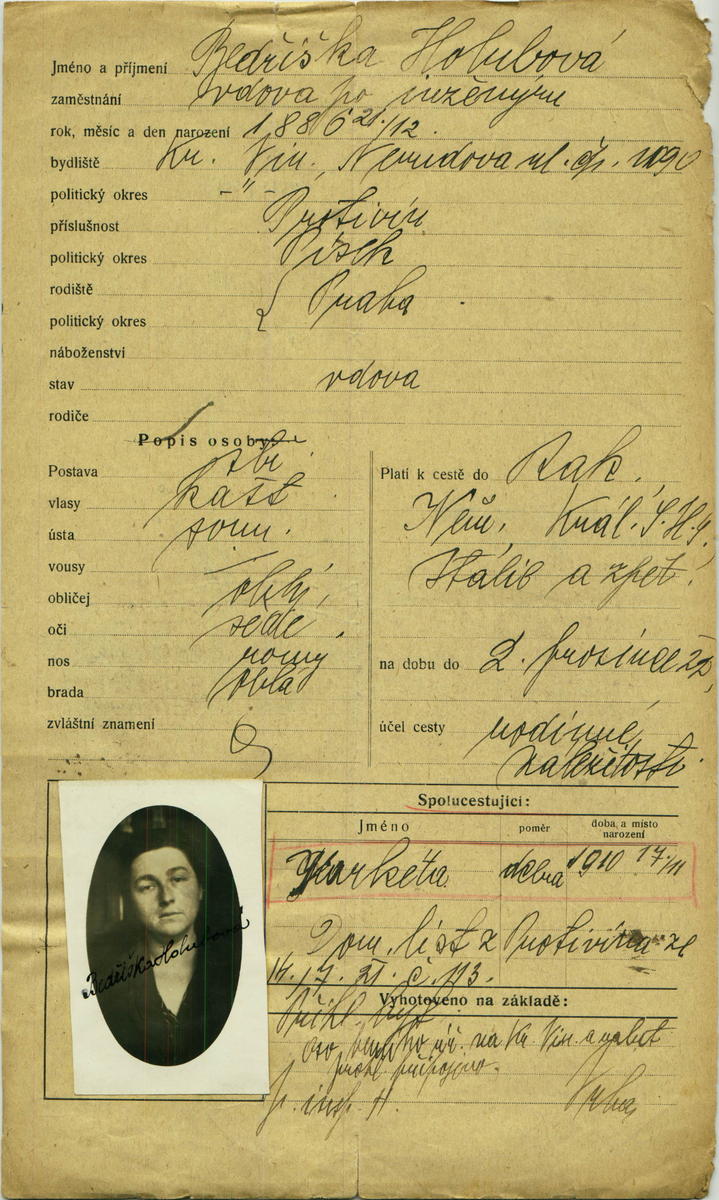 Jméno a příjmení Bedřiška Holubová
zaměstnání vdova po inženýru
rok, měsíc a den narození 1886 21/12.
bydliště Kr. Vin., Nerudova ul. čp. 1090
politický okres -"-
příslušnost Protivín
politický okres Písek
rodiště Praha
politický okres
náboženství
stav vdova
rodiče
Popis osoby:
Postava stř.
vlasy kašt
ústa soum.
vousy —
obličej obl.
oči šedé
nos rovný
brada oblá
zvláštní znamení
Platí k cestě do Rak.
Něm., Král. S.H.S.
Itálie a zpět.
na dobu do 2. prosince 22,
účel cesty rodinné
záležitosti.
Spolucestující:
Jméno poměr doba a místo
narození
Markéta dcera 1910 17/11
Dom. list z Protivína ze
14./7. 21. č. 113.
Vyhotoveno na základě:
Přihl.
na Kr. Vin. a
připojeno.
Bedřiška Holubová